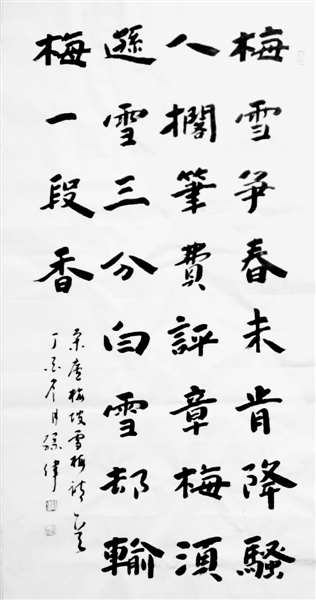 梅雪爭春未肯降騷
人擱筆費評章梅須
遜雪三分白雪却輸
梅一段香
宋盧梅坡雪梅詩
丁酉年月